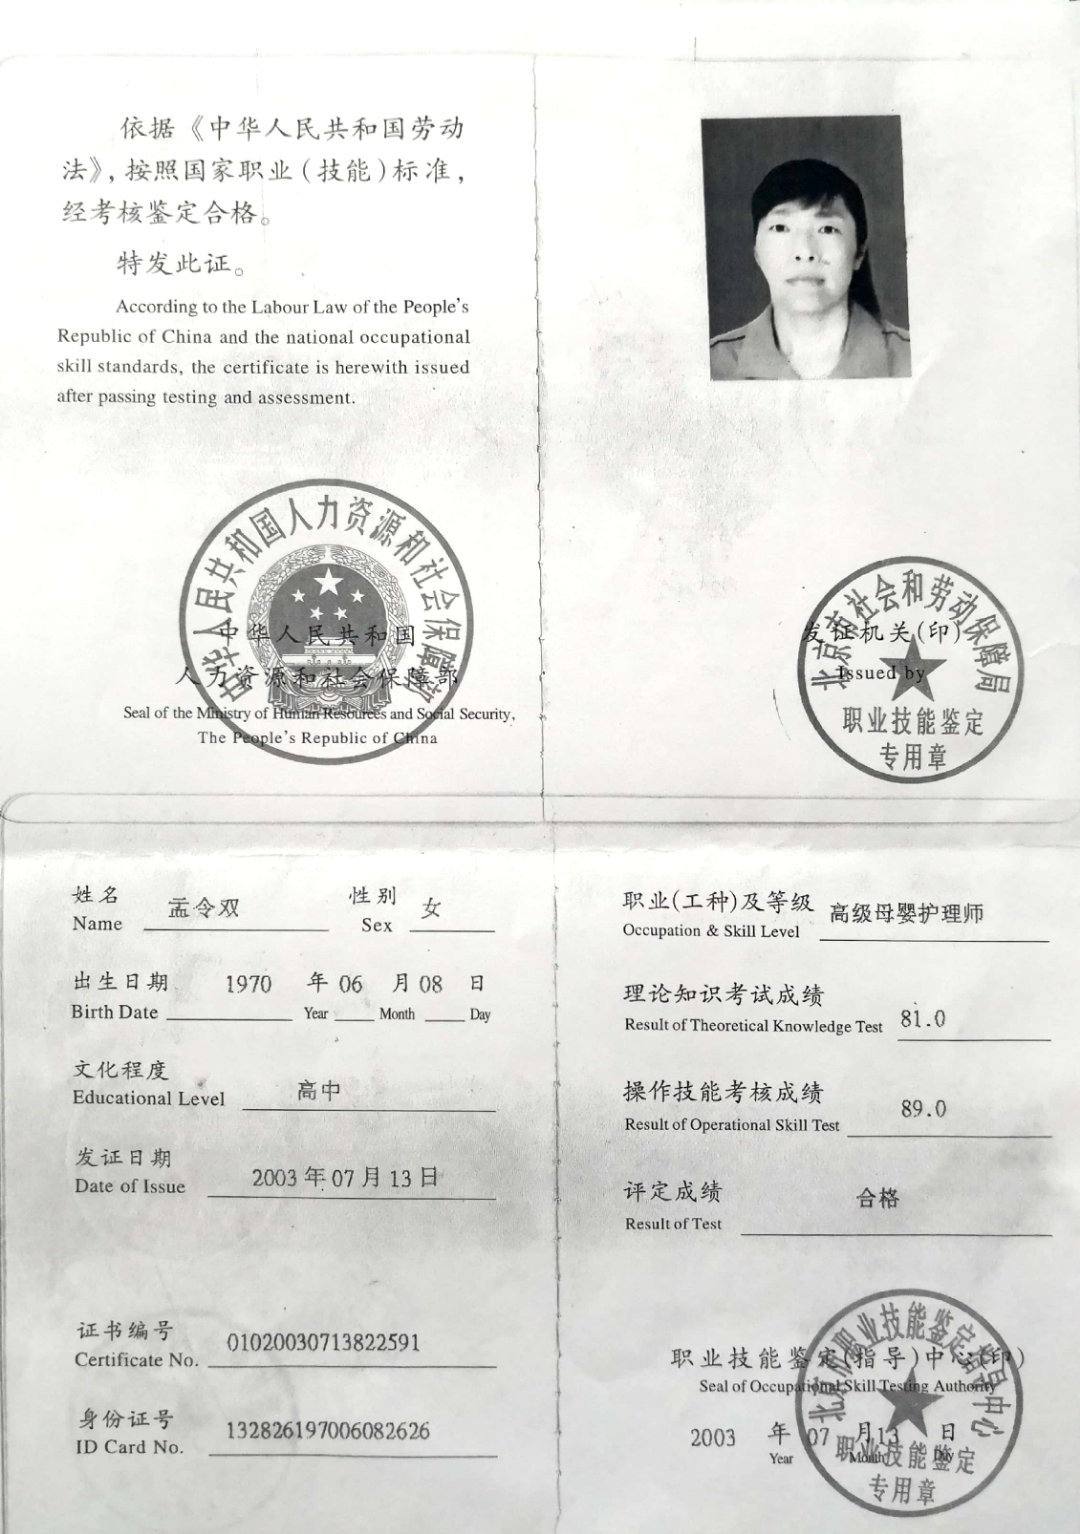 依据《中华人民共和国劳动
法》，按照国家职业（技能）标准，
经考核鉴定合格。
特发此证。
According to the Labour Law of the People's
Republic of China and the national occupational
skill standards, the certificate is herewith issued
after passing testing and assessment.
中华人民共和国人力资源和社会保障部
中华人民共和国
人力资源和社会保障部
Seal of the Ministry of Human Resources and Social Security,
The People's Republic of China
北京市社会和劳动保障局
发证机关(印)
Issued by
职业技能鉴定
专用章
姓名 孟令双 性别 女
Name Sex
出生日期 1970 年 06 月 08 日
Birth Date Year Month Day
文化程度 高中
Educational Level
发证日期 2003 年 07 月 13 日
Date of Issue
证书编号 01020030713822591
Certificate No.
身份证号 132826197006082626
ID Card No.
职业(工种)及等级 高级母婴护理师
Occupation & Skill Level
理论知识考试成绩 81.0
Result of Theoretical Knowledge Test
操作技能考核成绩 89.0
Result of Operational Skill Test
评定成绩 合格
Result of Test
北京市职业技能鉴定指导中心
职业技能鉴定(指导)中心(印)
Seal of Occupational Skill Testing Authority
2003 年 07 月 13 日
Year Month Day
职业技能鉴定
专用章